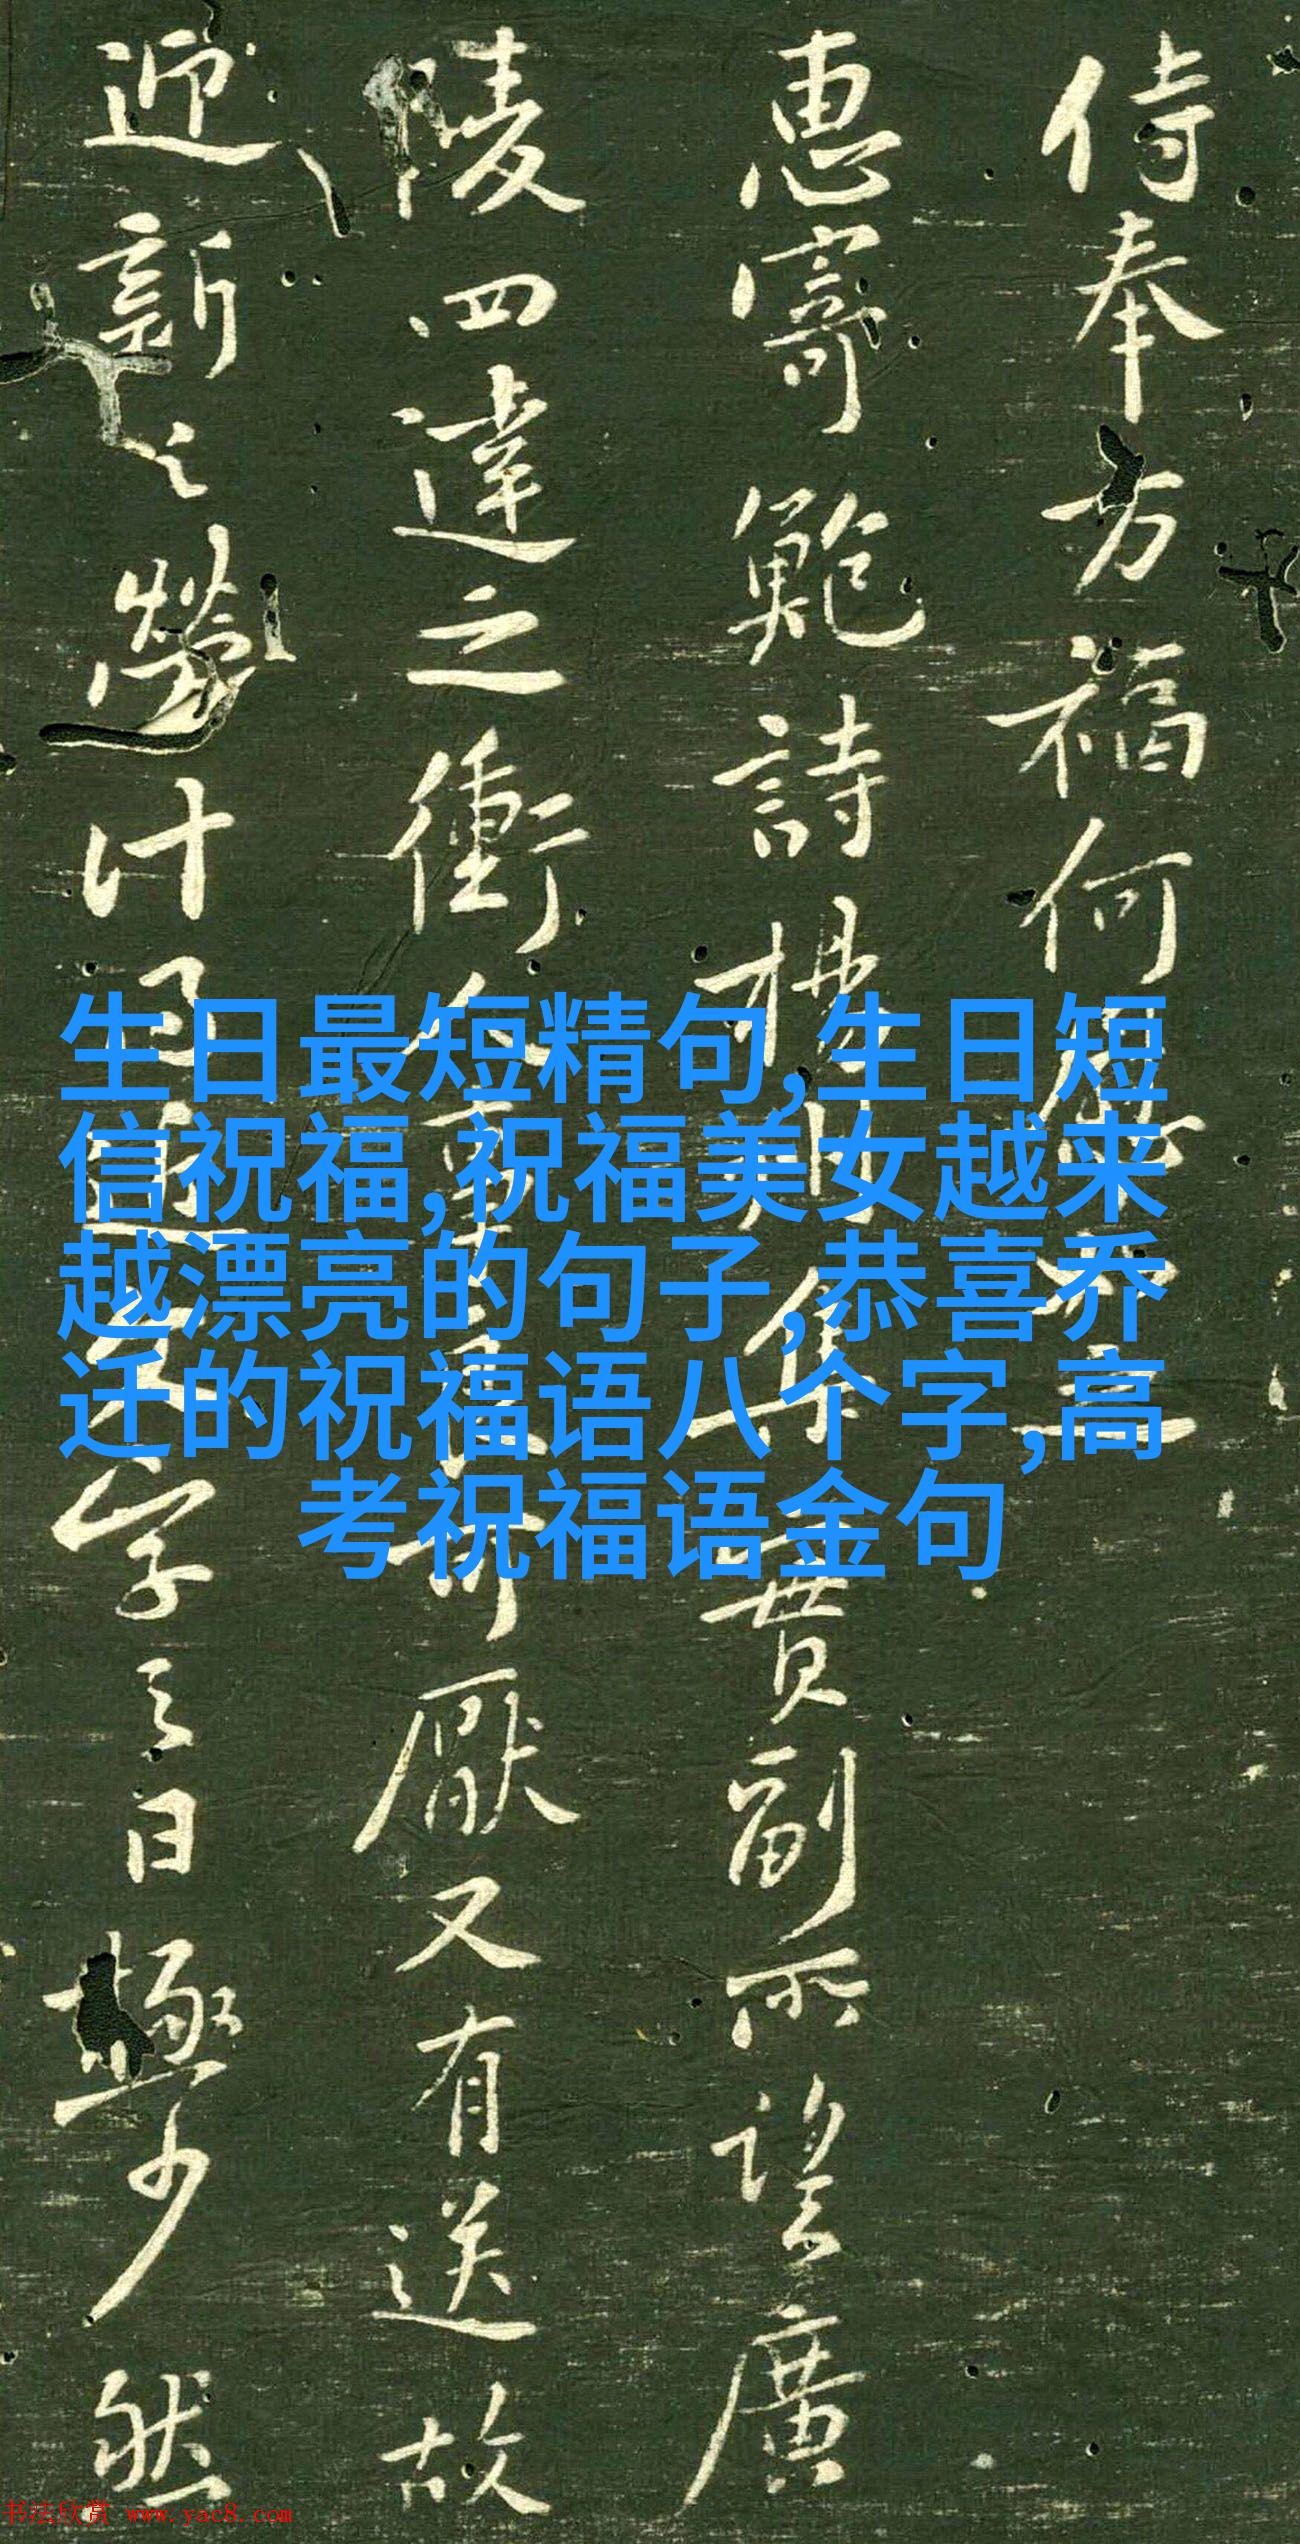 侍奉万福何
惠寄鲍詩
集
貫副所望廣
陵四達之衝人事良可厭又有送故
迎新之勞計
字三日極少然
生日最短精句,生日短
信祝福,祝福美女越来
越漂亮的句子,恭喜乔
迁的祝福语八个字,高
考祝福语金句
书法欣赏 www.yac8.com